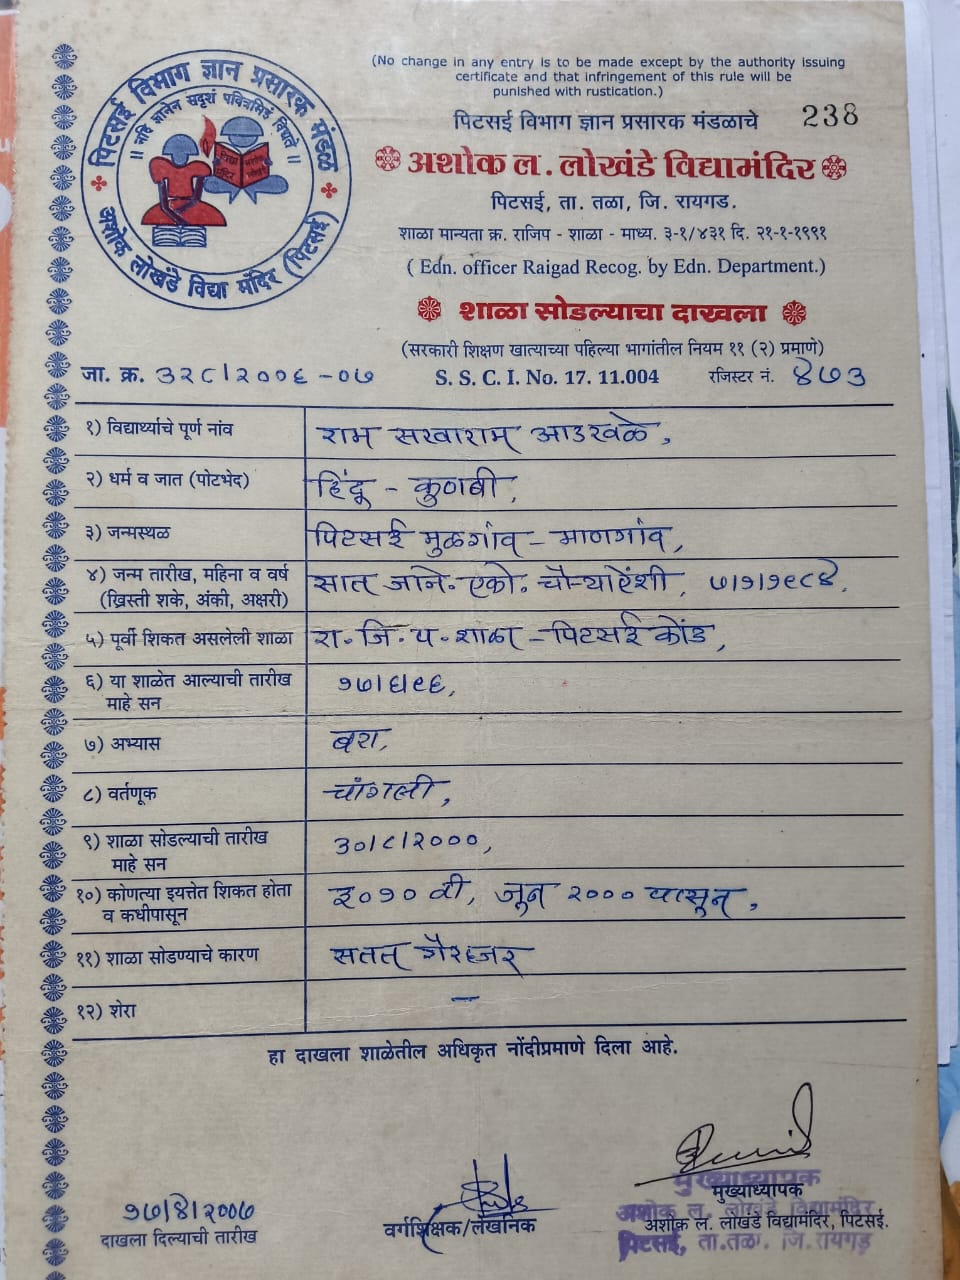 पिटसई विभाग ज्ञान प्रसारक मंडळ
॥ नहि ज्ञानेन सदृशं पवित्रमिह विद्यते ॥
अशोक लोखंडे विद्या मंदिर (पिटसई)
(No change in any entry is to be made except by the authority issuing
certificate and that infringement of this rule will be
punished with rustication.)
पिटसई विभाग ज्ञान प्रसारक मंडळाचे 238
अशोक ल. लोखंडे विद्यामंदिर
पिटसई, ता. तळा, जि. रायगड.
शाळा मान्यता क्र. राजिप - शाळा - माध्य. ३-१/४३१ दि. २१-१-१९९१
( Edn. officer Raigad Recog. by Edn. Department.)
शाळा सोडल्याचा दाखला
(सरकारी शिक्षण खात्याच्या पहिल्या भागांतील नियम ११ (२) प्रमाणे)
जा. क्र. ३२८/२००६-०७ S. S. C. I. No. 17. 11.004 रजिस्टर नं. ४७३
१) विद्यार्थ्याचे पूर्ण नांव राम सखाराम आउखळे,
२) धर्म व जात (पोटभेद) हिंदू - कुणबी,
३) जन्मस्थळ पिटसई मुळगांव - माणगांव,
४) जन्म तारीख, महिना व वर्ष सात जाने. एको. चौऱ्याऐंशी, ७/१/१९८४.
(ख्रिस्ती शके, अंकी, अक्षरी)
५) पूर्वी शिकत असलेली शाळा रा. जि. प. शाळा - पिटसई कोंड,
६) या शाळेत आल्याची तारीख १७/६/९६,
माहे सन
७) अभ्यास बरा,
८) वर्तणूक चांगली,
९) शाळा सोडल्याची तारीख ३०/८/२०००,
माहे सन
१०) कोणत्या इयत्तेत शिकत होता इ० १० वी, जून २००० पासून,
व कधीपासून
११) शाळा सोडण्याचे कारण सतत गैरहजर
१२) शेरा -
हा दाखला शाळेतील अधिकृत नोंदीप्रमाणे दिला आहे.
१७/४/२००७
दाखला दिल्याची तारीख
वर्गशिक्षक/लेखनिक
मुख्याध्यापक
मुख्याध्यापक
अशोक ल. लोखंडे विद्यामंदिर
अशोक ल. लोखंडे विद्यामंदिर, पिटसई.
पिटसई, ता.तळा. जि.रायगड